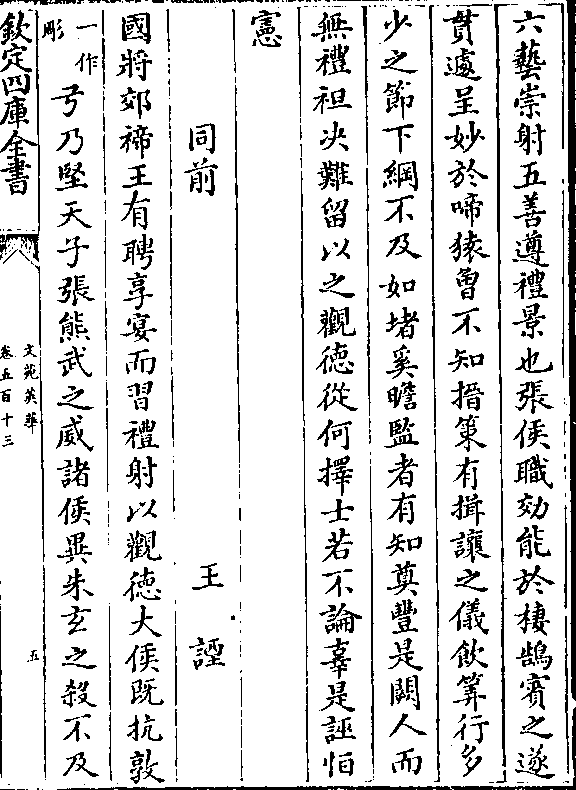 六藝崇射五善遵禮景也張侯職効能於棲鵠賓之遂
貫遽呈妙於啼猿曽不知搢䇿有揖讓之儀飲筭行多
少之節下綱不及如堵奚瞻監者有知奠豐是闕人而
無禮袒决難留以之觀徳從何擇士若不論辜是誣怕
憲
同前 王諲
國將郊禘王有聘享宴而習禮射以觀徳大侯既抗敦
一作彫弓乃堅天子張熊武之威諸侯異朱玄之殺不及
欽定四庫全書
文苑英華
卷五百十三
五